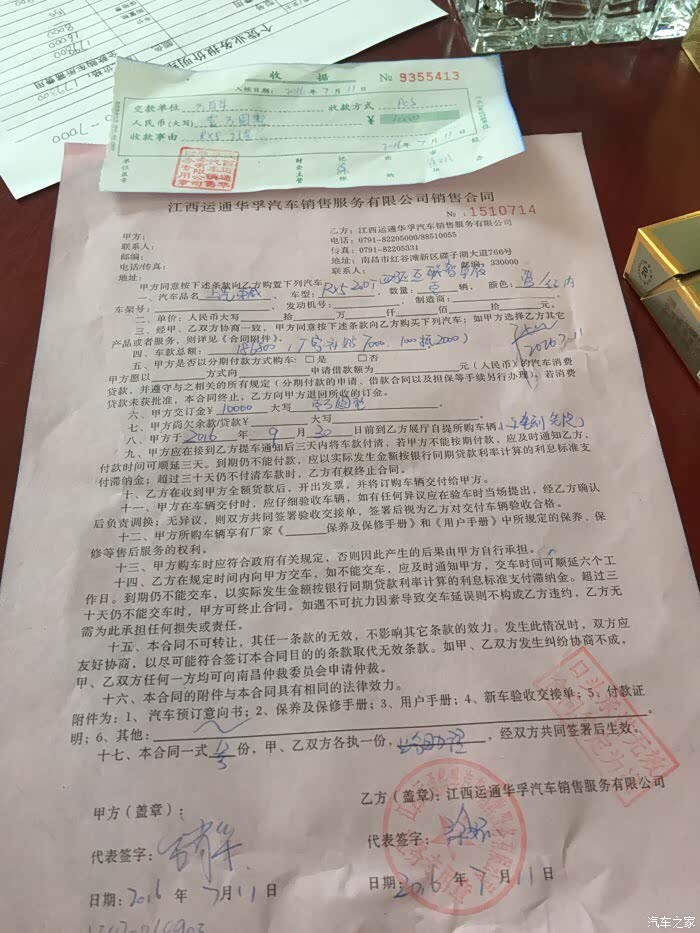 收据
№ 9355413
入账日期：2016年7月11日
交款单位
收款方式
人民币（大写）
¥ 10000
收款事由 RX5 订金
2016年7月11日
江西运通华孚汽车销售服务有限公司销售合同
№ :1510714
甲方：
乙方：江西运通华孚汽车销售服务有限公司
联系人：
电话：0791-82205000/88510055
邮编：
传真：0791-82205331
电话/传真：
地址：南昌市红谷滩新区碟子湖大道766号
地址：
联系人： 邮编：330000
甲方同意按下述条款向乙方购置下列汽车
一、汽车品名 上汽荣威，车型：RX5 20T 四驱互联智尊版，数量：壹辆，颜色：
车架号： 发动机号： 制造商：
二、单价：人民币大写 拾 万 仟 佰 拾 元。
三、经甲、乙双方协商一致，甲方同意按下述条款向乙方购买下列汽车；如甲方选择乙方其它
产品或者服务，则详见《合同附件》。
四、车款总额：186800（厂家补贴7000，100抵2000）
五、甲方是否以分期付款方式购车：□是 □否
甲方愿以 方式向 申请借款为 元（人民币）的汽车消费
贷款，并遵守与之相关的所有规定（分期付款的申请、借款合同以及担保等手续另行办理）。若消费
贷款未获批准，本合同终止，乙方向甲方退回所收的订金。
六、甲方交订金¥ 10000 大写 壹万圆整
七、甲方尚欠余款/贷款¥ 大写 。
八、甲方于 2016 年 9 月 30 日前到乙方展厅自提所购车辆。
九、甲方应在接到乙方提车通知后三天内将车款付清，若甲方不能按期付款，应及时通知乙方，
付款时间可顺延三天。到期仍不能付款，应以实际发生金额按银行同期贷款利率计算的利息标准支
付滞纳金；超过三十天仍不付清车款时，乙方有权终止合同。
十、乙方在收到甲方全额货款后，开出发票，并将订购车辆交付给甲方。
十一、甲方在车辆交付时，应仔细验收车辆，如有任何异议应在验车时当场提出，经乙方确认
后负责调换；无异议，则双方共同签署验收交接单，签署后视为乙方对交付车辆验收合格。
十二、甲方所购车辆享有厂家《 保养及保修手册》和《用户手册》中所规定的保养、保
修等售后服务的权利。
十三、甲方购车时应符合政府有关规定，否则因此产生的后果由甲方自行承担。
十四、乙方在规定时间内向甲方交车，如不能交车，应及时通知甲方，交车时间可顺延六个工
作日。到期仍不能交车，以实际发生金额按银行同期贷款利率计算的利息标准支付滞纳金。超过三
十天仍不能交车时，甲方可终止合同。如遇不可抗力因素导致交车延误则不构成乙方违约，乙方无
需为此承担任何损失或责任。
十五、本合同不可转让，其任一条款的无效，不影响其它条款的效力。发生此情况时，双方应
友好协商，以尽可能符合签订本合同目的的条款取代无效条款。如甲、乙双方发生纠纷协商不成，
甲、乙双方任何一方均可向南昌仲裁委员会申请仲裁。
十六、本合同的附件与本合同具有相同的法律效力。
附件为：1、汽车预订意向书；2、保养及保修手册；3、用户手册；4、新车验收交接单；5、付款证
明；6、其他： 。
十七、本合同一式 份，甲、乙双方各执一份， ，经双方共同签署后生效。
甲方（盖章）：
乙方（盖章）：江西运通华孚汽车销售服务有限公司
代表签字：
代表签字：
日期：2016年7月11日
日期：2016年7月11日
汽车之家